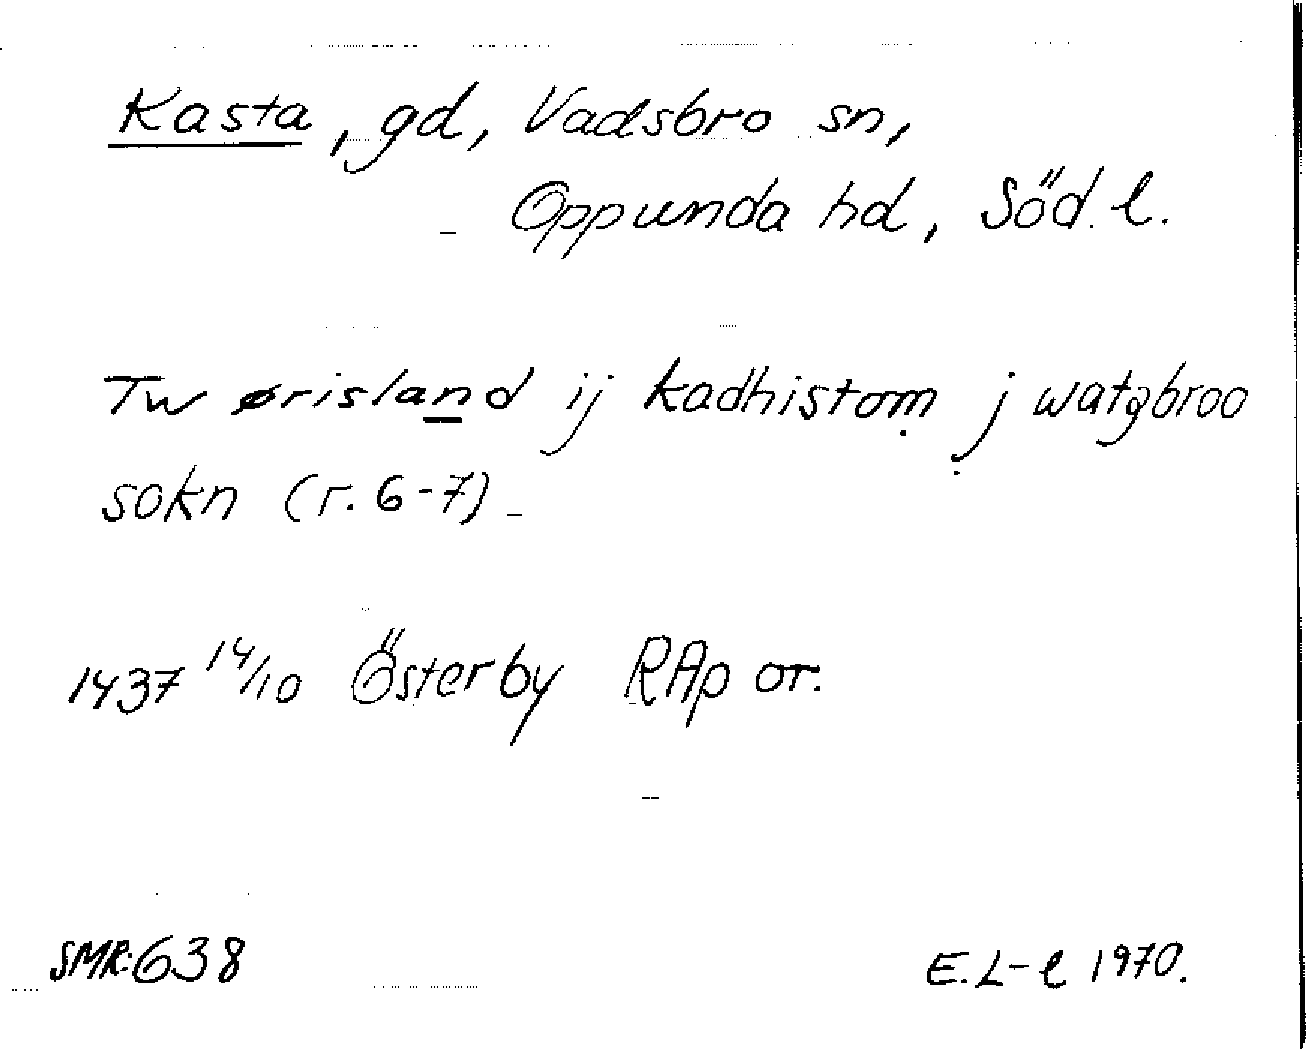 Kasta, gd, Vadsbro sn,
Oppunda hd, Söd. l.
Tw ørisland ij kadhistom j watzbroo
sokn (r. 6-7)
1437 14/10 Österby RAp or.
SMR:638
E. L-l 1970.